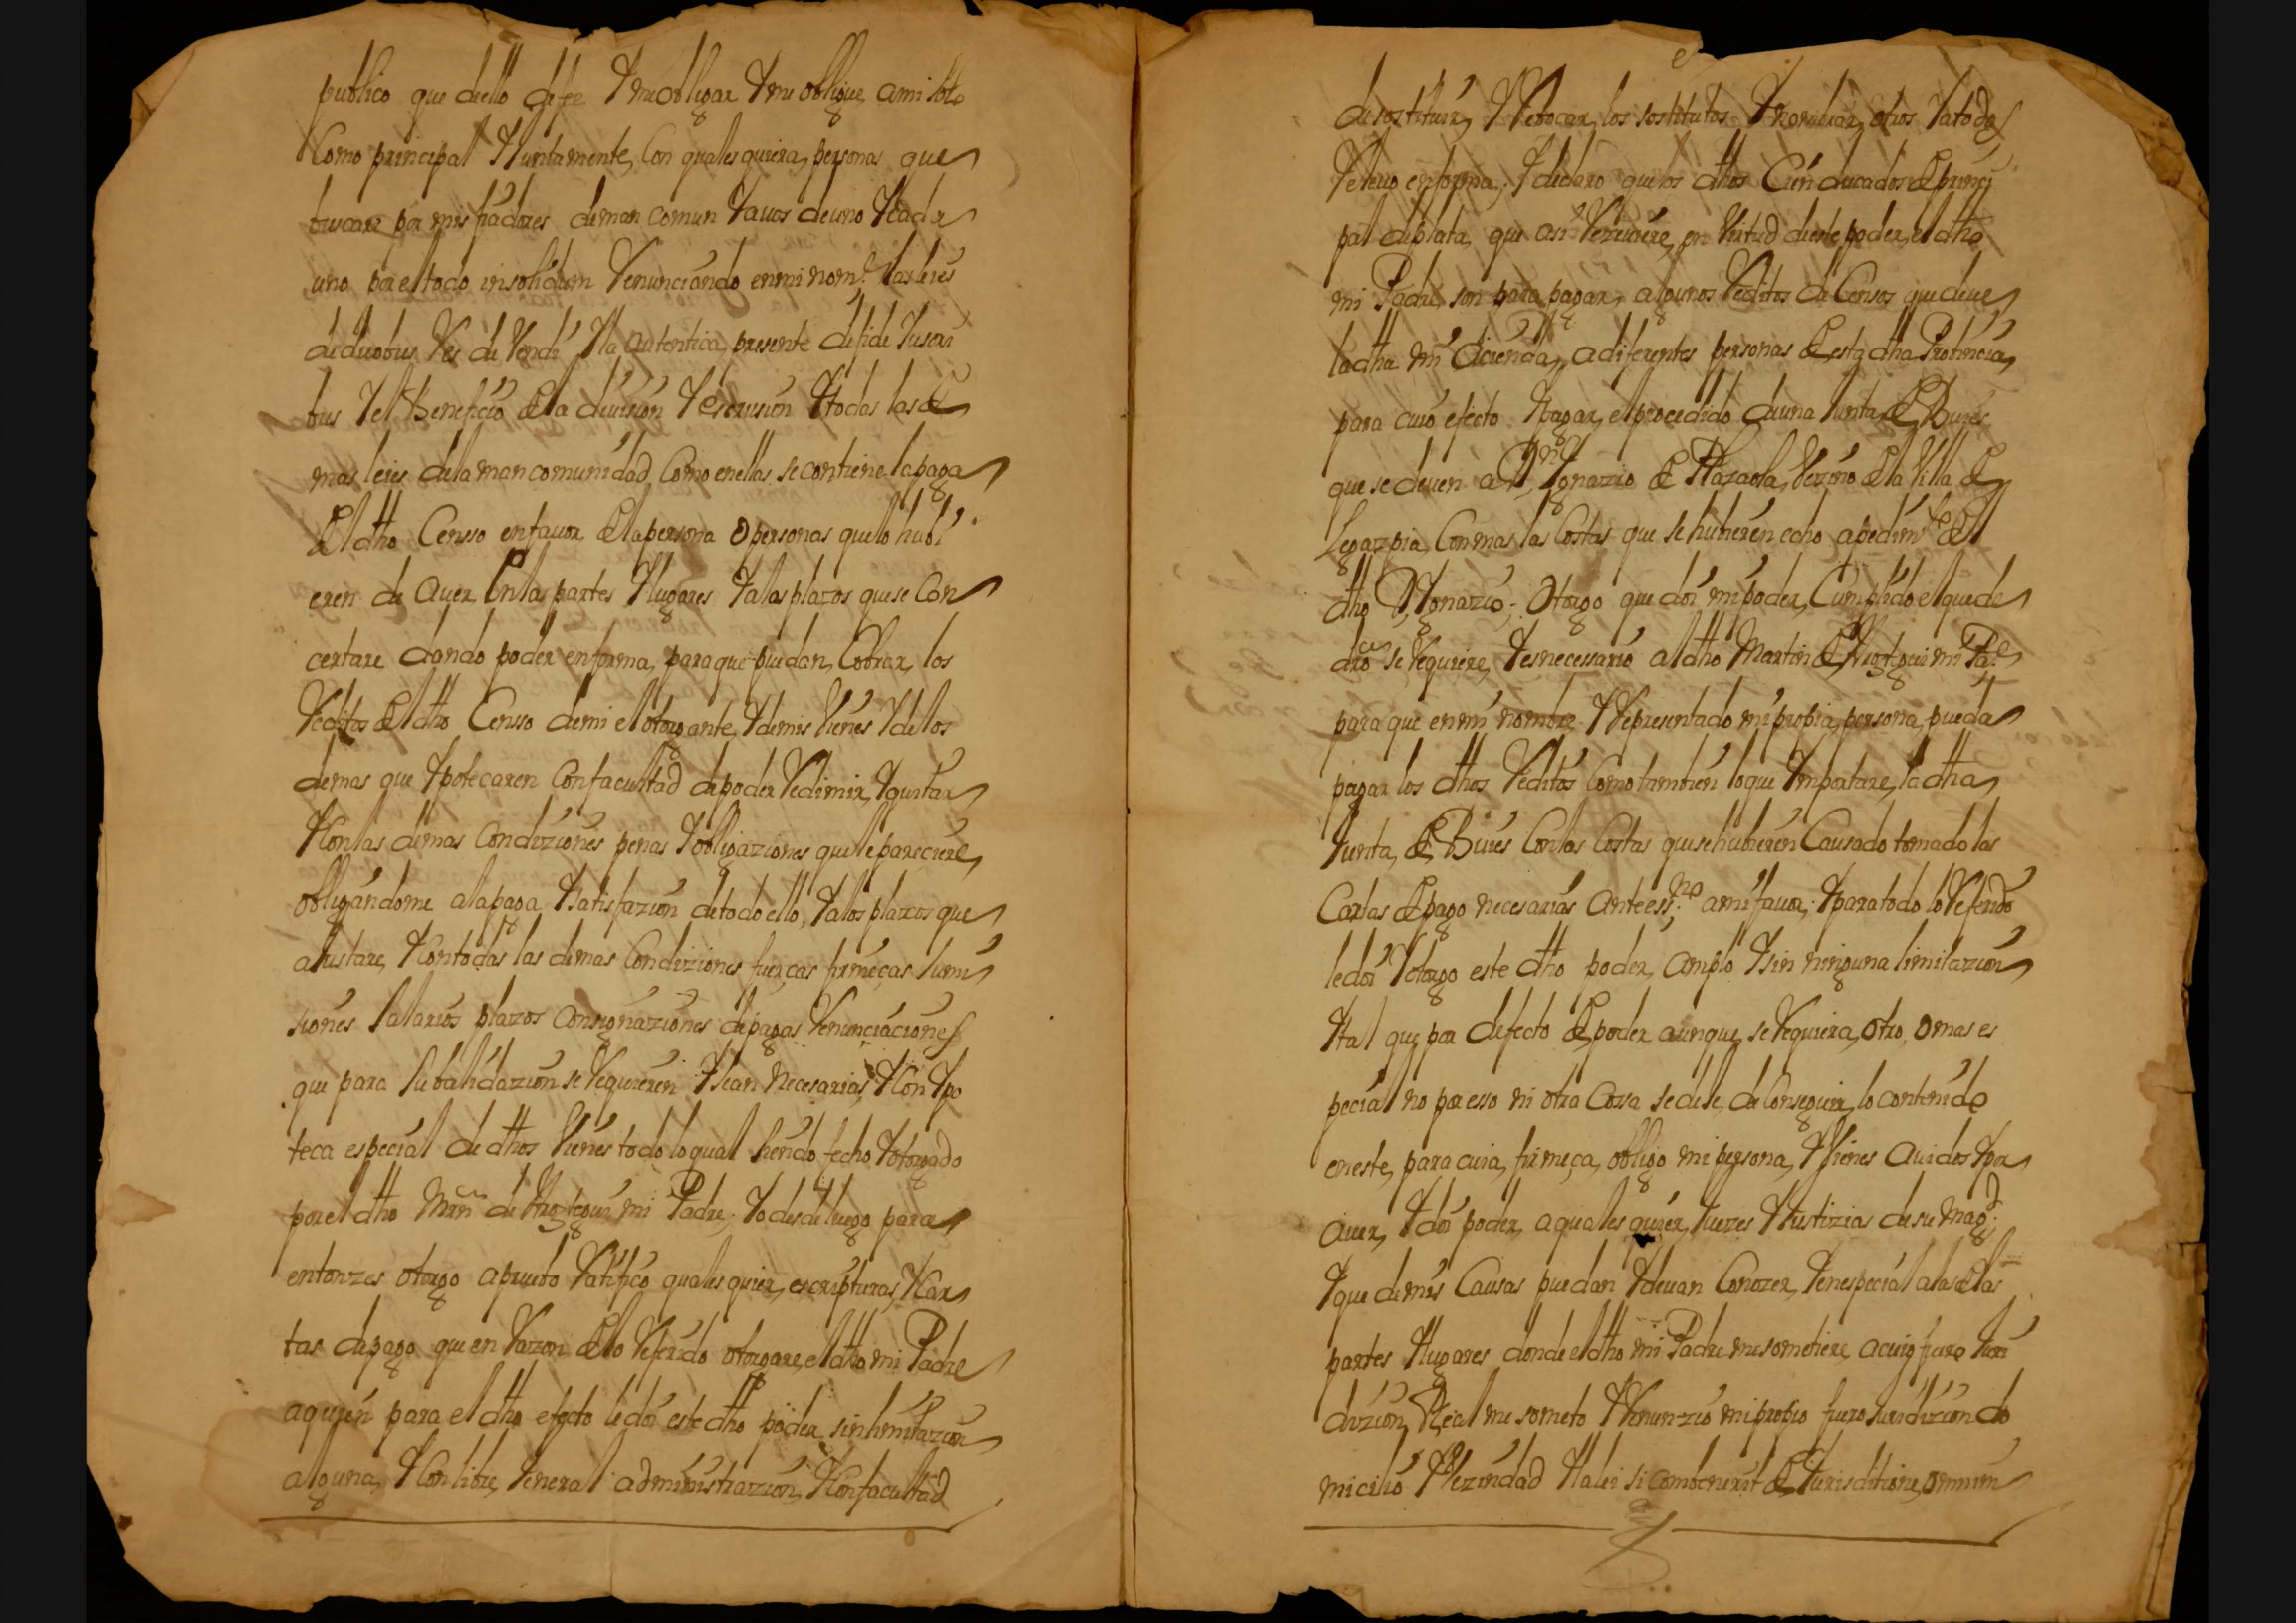 publico que dello de fee Y me obligar Y me obligue ami solo
Como principal Y Juntamente, Con quales quiera, personas que
buscare por mis fiadores de man comun Y a uos de uno Y cada
uno por el todo insolidum Renunciando en mi nom.e las leies
de duobus Res de Vendi Y la autentica, presente de fide Iusori
bus Y el Beneficio de la diuision Y escursion Y todas las de
mas leies de la man comunidad, Como en ellas se contiene la paga
del dho Censso en fauor de la persona O personas que lo hubi
eren de auer En las partes Y lugares Y a los plazos que se Con
certare dando poder en forma, para que puedan, Cobrar, los
Reditos del dho Censso de mi el otorgante, Y de mis Vienes Y de los
demas que Ypotecaren Con facultad de poder Redimir, Y quitar
Y Con las demas Condiziones penas Y obligaziones que le pareciere,
obligandome a la paga Y satisfazion de todo ello, Y a los plazos que
aJustare, Y Con todas las demas Condiziones fuerças firmeças sumi
siones salarios plazos Consignaziones de pagas Renunciaciones
que para su balidazion se Requieren Y sean Necesarias, Y Con Ypo
teca especial de dhos Vienes todo lo qual siendo fecho Y otorgado
por el dho Mrn de mi Padre; Yo desde luego para
entonzes otorgo apruebo Ratifico quales quier, escripturas, Y Car
tas de pago que en Razon de lo Referido otorgare, el dho mi Padre
a quien para el dho efecto le doi este dho poder, sin limitazion
alguna, Y Con libre, Jeneral administrazion, Y Con facultad
de sostituir, Y Rebocar, los sostitutos Y nombrar, otros Y a todos
Relebo en forma; Y declaro que los dhos Cien ducados de princi
pal de plata, que asi Reziuiere, en Virtud de este poder, el dho
mi Padre, son para pagar, algunos Reditos de Censos que deue
la dha mi acienda, a diferentes personas de esta dha Probincia,
para cuio efecto Y pagar, el procedido de una Junta de Buies
que se deuen a Dn Ygnazio de Plazaola, Vezino de la Villa de
Legazpia, Con mas las Costas que se hubieren echo a pedim.to del
dho Dn Ygnazio; Otorgo que doi mi poder, Cumplido el que de
dro se Requiere, Y es necessario al dho Martin de mi Pa.e
para que en mi nombre Y Representado mi propia, persona, pueda
pagar los dhos Reditos Como tambien lo que Ymportare, la dha
Junta, de Buies Con las Costas que se hubieren Causado tomado las
Cartas de pago necesarias Ante ess.no a mi fauor; Y para todo lo Referido
le doi Y otorgo este dho poder, amplo Y sin ninguna limitazion
Y tal que por defecto de poder aunque, se Requiera, otro, O mas es
pecial no por esso ni otra Cossa se deje, de Conseguir, lo contenido
en este, para cuia, firmeça, obligo mi persona, Y Vienes auidos Y por
auer, Y doi poder, a quales quier, Juezes Y Justizias de su Mag.d
Y que de mis Causas puedan Y deuan Conozer, Y en especial a las de las
partes Y lugares donde el dho mi Padre me sometiere, a cuio fuero Juri
dizion, Real me someto Y Renunzio mi propio fuero Juridizion do
micilio Y Vezindad Y la lei si combenerit de Jurisditione, omnium